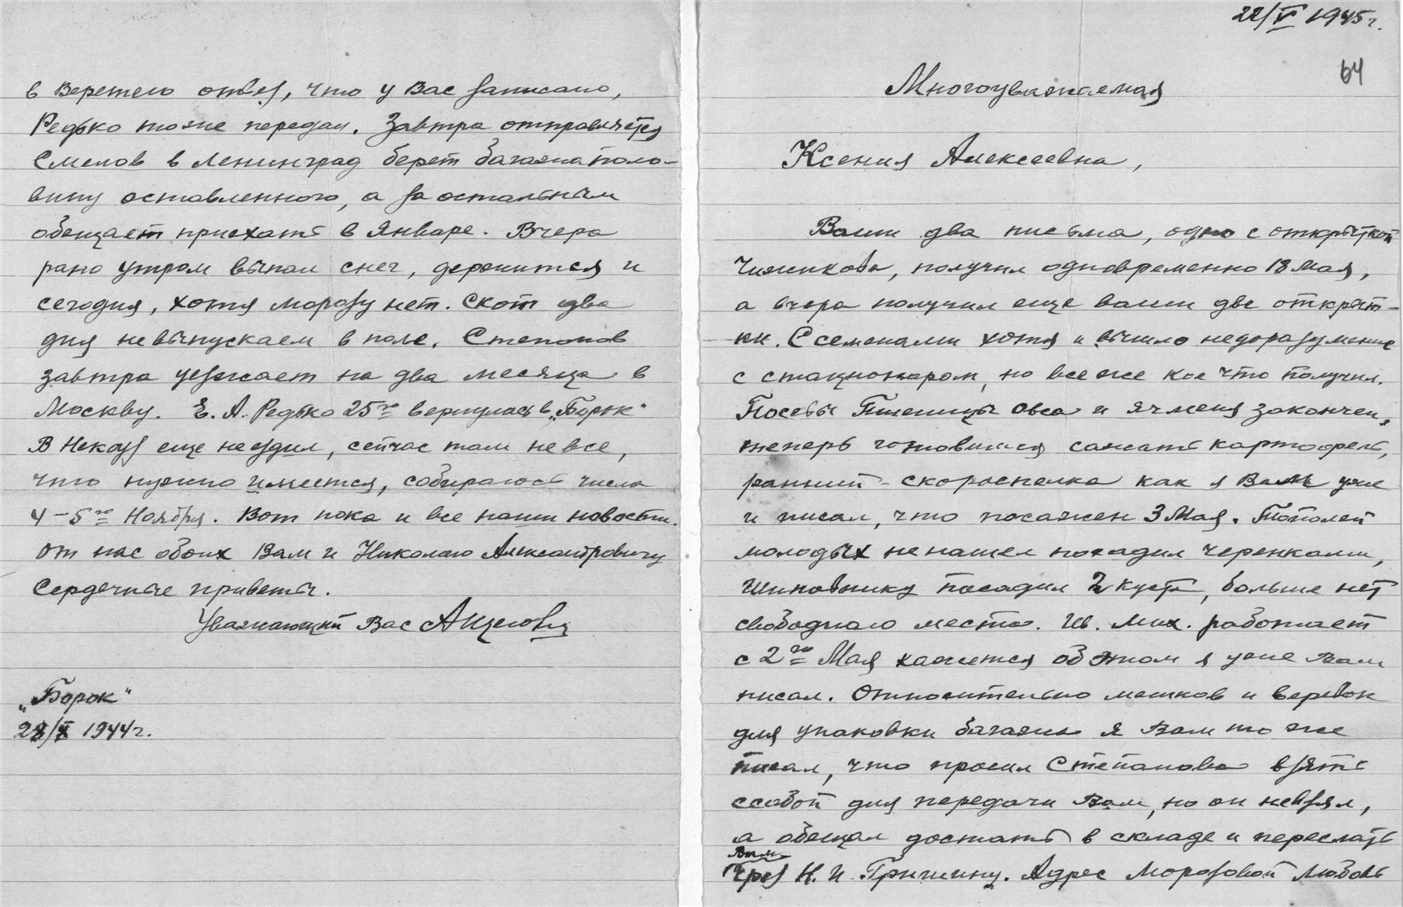 в Веретею отвез, что у Вас записано,
Редько тоже передал. Завтра отправляется
Смелов в Ленинград берет багажа поло-
вину оставленного, а за остальным
обещает приехать в Январе. Вчера
рано утром выпал снег, держится и
сегодня, хотя морозу нет. Скот два
дня невыпускаем в поле. Степанов
завтра уезжает на два месяца в
Москву. Е. А. Редько 25го вернулась в „Борок"
В Некоуз еще неездил, сейчас там не все,
что нужно имеется, собираюсь числа
4-5го Ноября. Вот пока и все наши новости.
От нас обоих Вам и Николаю Александровичу
Сердечные приветы.
Уважающий Вас
„Борок"
28/X 1944 г.
22/V 1945 г.
64
Многоуважаемая
Ксения Алексеевна,
Ваши два письма, одно с открыткой
Чижикова, получил одновременно 18 Мая,
а вчера получил еще ваши две открыт-
ки. С семенами хотя и вышло недоразумение
с стационаром, но все же кое что получил.
Посевы Пшеницы Овса и ячменя закончен,
теперь готовимся сажать картофель,
ранний - скороспелка как я Вам уже
и писал, что посажен 3 Мая. Тополей
молодых не нашел посадил черенками,
Шиповнику посадил 2 куста, больше нет
свободного места. Ив. Мих. работает
с 2го Мая кажется об этом я уже Вам
писал. Относительно мешков и веревок
для упаковки багажа я Вам то же
писал, что просил Степанова взять
ссобой для передачи Вам, но он невзял,
а обещал достать в складе и переслать
Вам
через Н. И. Гришину. Адрес Морозовой Любовь